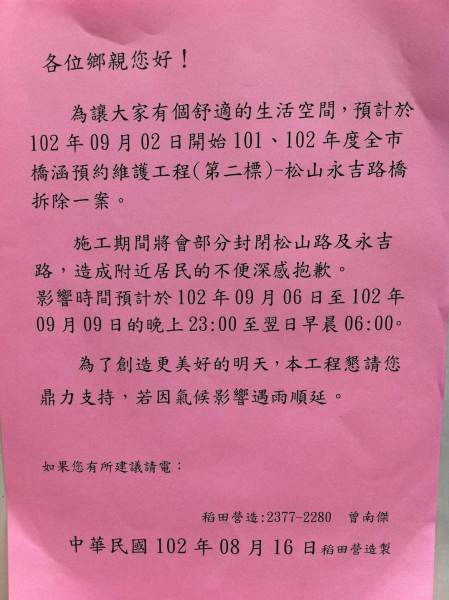 各位鄉親您好！
為讓大家有個舒適的生活空間，預計於
102 年 09 月 02 日開始 101、102 年度全市
橋涵預約維護工程(第二標)-松山永吉路橋
拆除一案。
施工期間將會部分封閉松山路及永吉
路，造成附近居民的不便深感抱歉。
影響時間預計於 102 年 09 月 06 日至 102 年
09 月 09 日的晚上 23:00 至翌日早晨 06:00。
為了創造更美好的明天，本工程懇請您
鼎力支持，若因氣候影響遇雨順延。
如果您有所建議請電：
稻田營造:2377-2280 曾南傑
中華民國 102 年 08 月 16 日稻田營造製